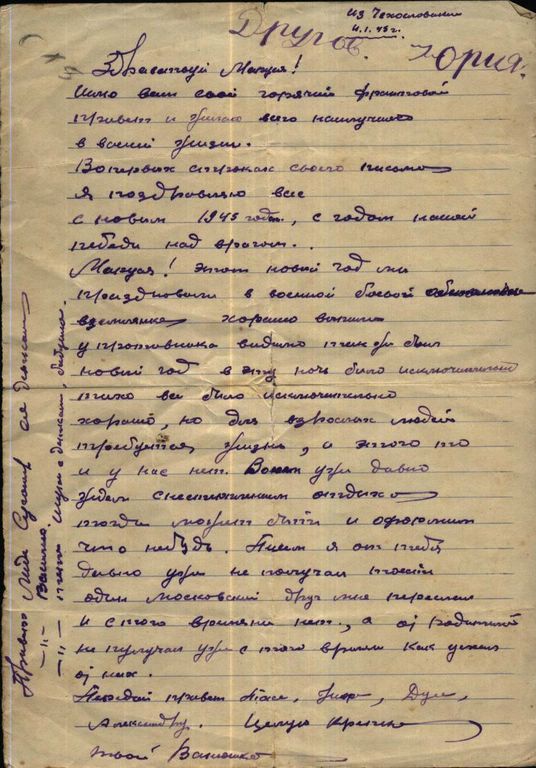 Из Чехословакии
4.1.45 г.
Другов. Юрия.
Здраваствуй Маруся!
Шлю вам свой горячий фронтовой
привет и желаю всего наилучшего
в вашей жизни.
Вопервых строках своего письма
Я поздровляю вас
с новым 1945 годом, с годом нашей
победы над врагом.
Маруся! этот новый год мы
праздновали в военной боевой обстановке
в землянке хорошо выпили
у противника видимо тоже был
новый год в эту ночь было исключительно
тихо все было исключительно
хорошо, но для взрослых людей
требуется жизнь, а этого то
и у нас нет. уже давно
ждем с нетерпением отдыха
тогда может быть и
что нибудь. Писем я от тебя
давно уже не получал
один московский друг мне переслал
и с того времени нет, а от родителей
не получал уже с того время как уехал
от них.
Передай привет Тасе, Дусе,
Александру. Целую Крепко
твой Ванюшка
Привет Лиде с детьми
—"— Василию.
—"— тете Шуре с детьми, бабушке.